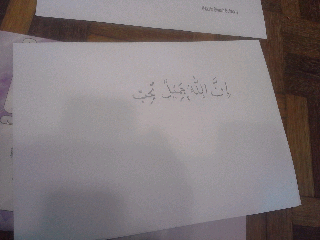 إِنَّ اللَّهَ جَمِيلٌ يُحِبُّ